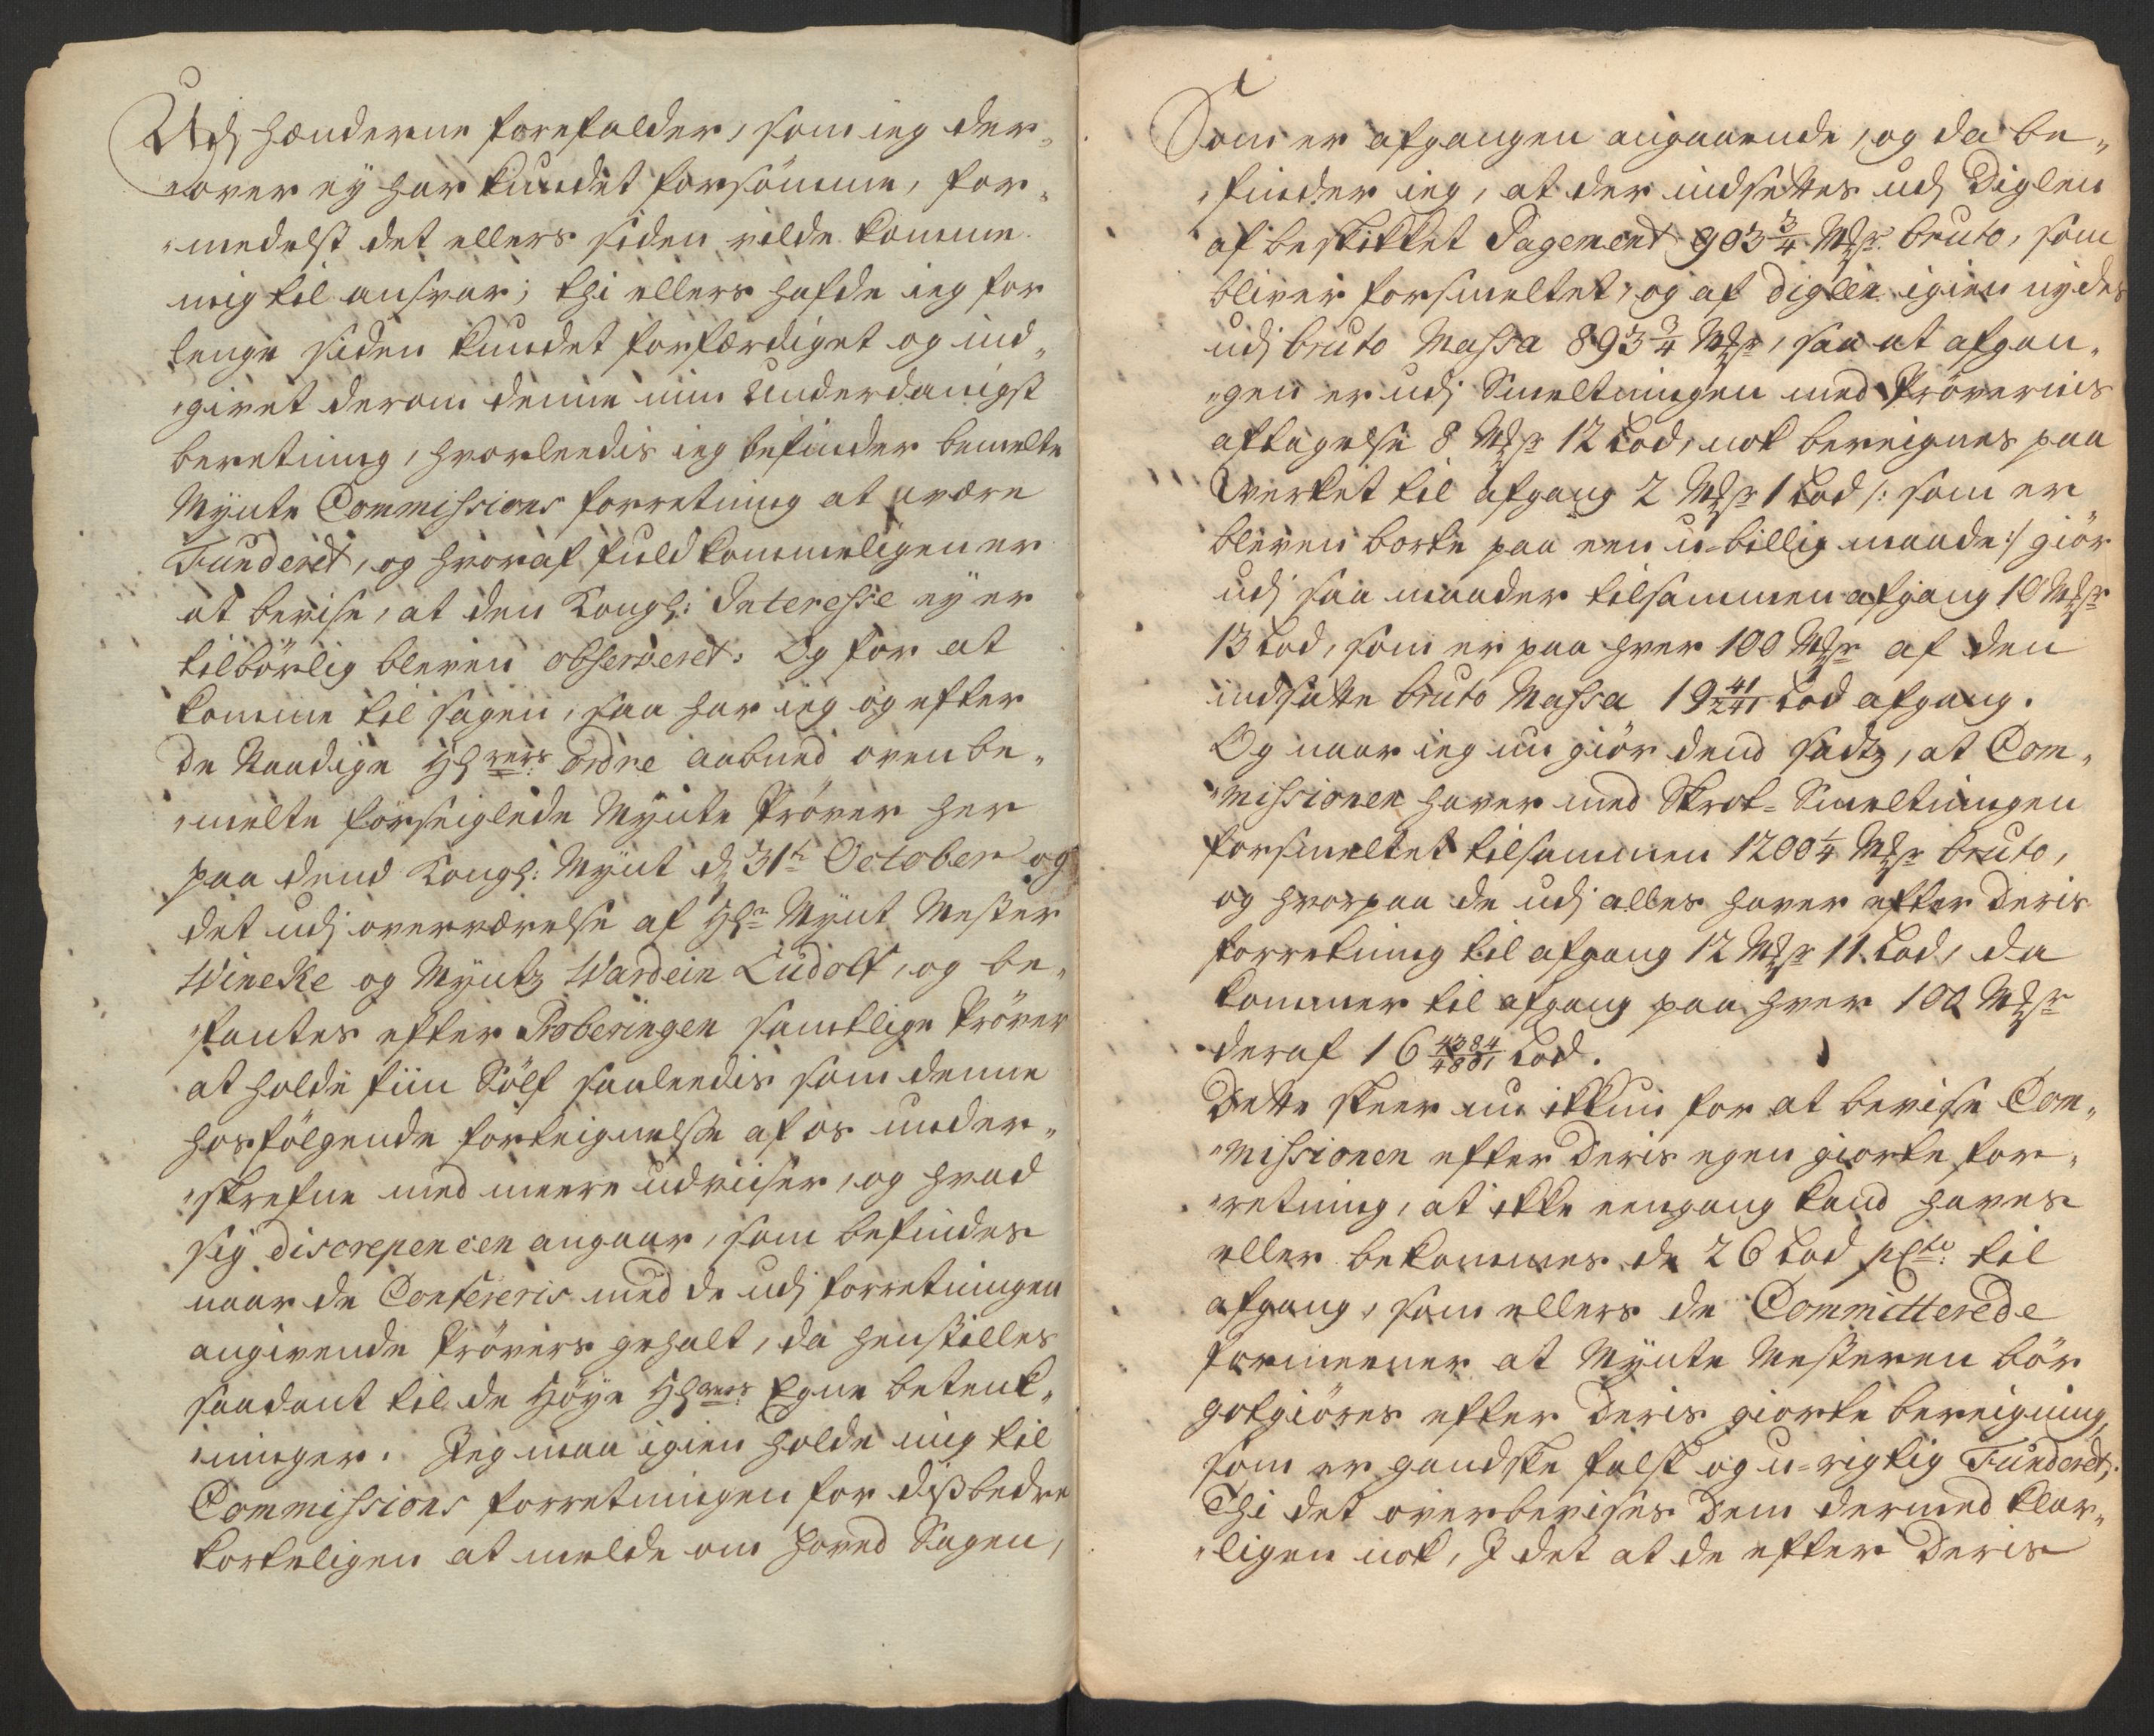 Udj hænderne forefalder, som ieg der„
„over ey har kundet forsömme, for„
„medelst det ellers siden vilde komme
mig til ansvar; thi ellers hafde ieg for
lenge siden kundet forfærdiget og ind„
„givet derom denne min underdanigst
beretning, hvorleedis ieg befinder bemelte
Mynte Commissions forretning at være
Funderet, og hvoraf fuldkommeligen er
at bevise, at den Kongl: Interesse ey er
tilbörlig bleven observeret: Og for at
komme til sagen, saa har ieg og efter
de Naadige Hhrers: ordre aabned ovenbe„
„melte forseiglede Mynte Pröver her
paa dend Kongl: Mynt d 31t October og
det udj overværelse af Hr Mynt Mester
Wineke og Myntz Wardein Ludolf, og be„
„fantes efter Proberingen samtlige Pröver
at holde fiin Sölf saaleedis som denne
hosfölgende forteignelse af os under„
„skrefne med meere udviiser, og hvad
sig discrepencen angaar, som befindes
naar de Confereris med de udj forretningen
angivende Prövers gehalt, da henstilles
saadant til de Höye Hhrers: Egne betenk„
„ninger. Jeg maa igien holde mig til
Commissions forretningen for diß bedre
korteligen at melde om Hoved Sagen,
Som er afgangen angaaende, og da be„
„finder ieg, at der indsettes udj Diglen
af beskikket Pagement 903 3/4 Mkr bruto, som
bliver forsmeltet, og af diglen igien nydes
udj bruto Massa 893 3/4 Mkr, saa at afgan„
„gen er udj Smeltningen med Prövernis
aftagelse 8 Mkr 12 Lod, nok bereignes paa
Werket til afgang 2 Mkr 1 Lod /: som er
bleven borte paa een u-billig maade :/ giör
udj saa maader tilsammen afgang 10 Mkr
13 Lod, som er paa hver 100 Mkr af den
indsatte bruto Massa 19 41/241 Lod afgang.
Og naar ieg nu giör dend Sadtz, at Com„
„missionen haver med Skrot-Smeltningen
forsmeltet tilsammen 1200 1/4 Mkr bruto,
og hvorpaa de udj alles haver efter Deris
forretning til afgang 12 Mkr 11 Lod, da
kommer til afgang paa hver 100 Mkr
deraf 16 4384/4801 Lod.
Dette skeer nu ikkun for at bevise Com„
„missionen efter Deris egen giorte for„
„retning, at ikke eengang kand haves
eller bekommes de 26 Lod pCto: til
afgang, som ellers de Committerede
formeener at Mynte Mesteren bör
gotgiöres efter Deris giorte bereigning,
som er gandske falsk og u-rigtig Funderet,
Thi det overbevises Dem dermed klar„
„ligen nok, I det at de efter Deris